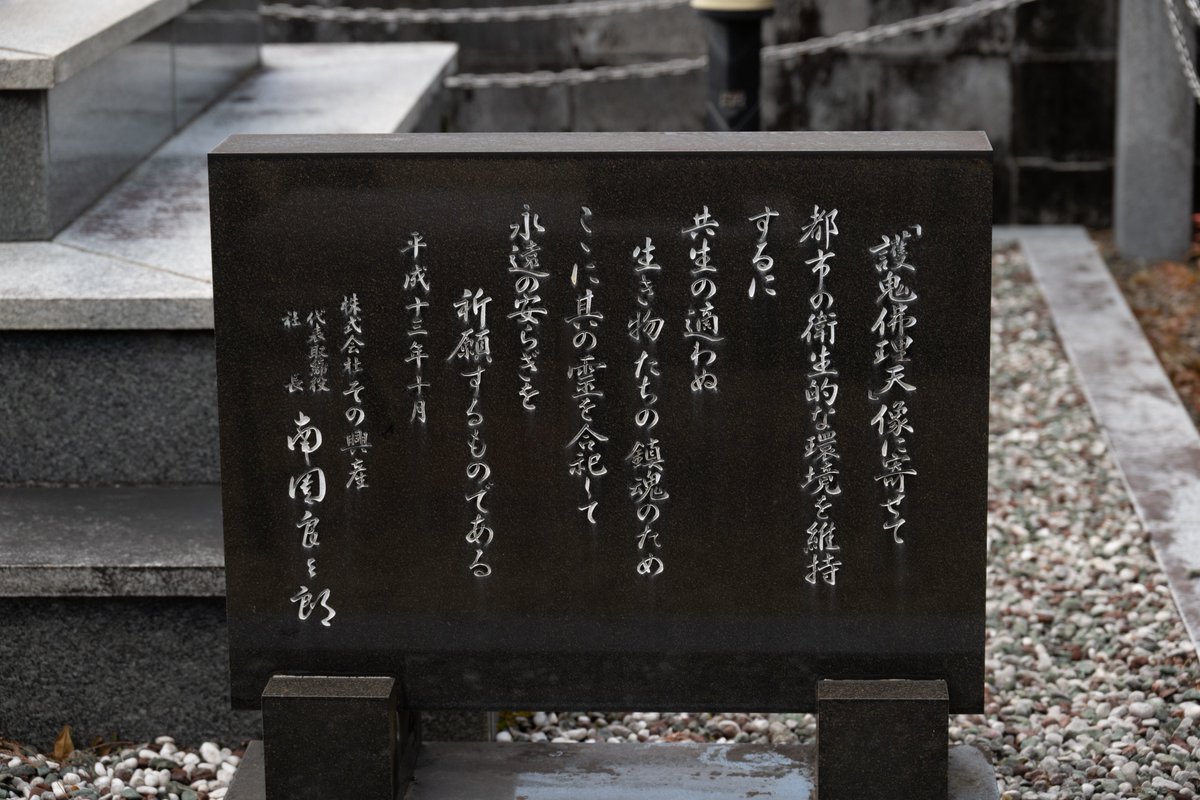 「護鬼佛理天」像に寄せて
都市の衛生的な環境を維持
するに
共生の適わぬ
生き物たちの鎮魂のため
こゝに其の霊を合祀して
永遠の安らぎを
祈願するものである
平成十三年十月
株式会社その興産
代表取締役
社長
南園良三郎